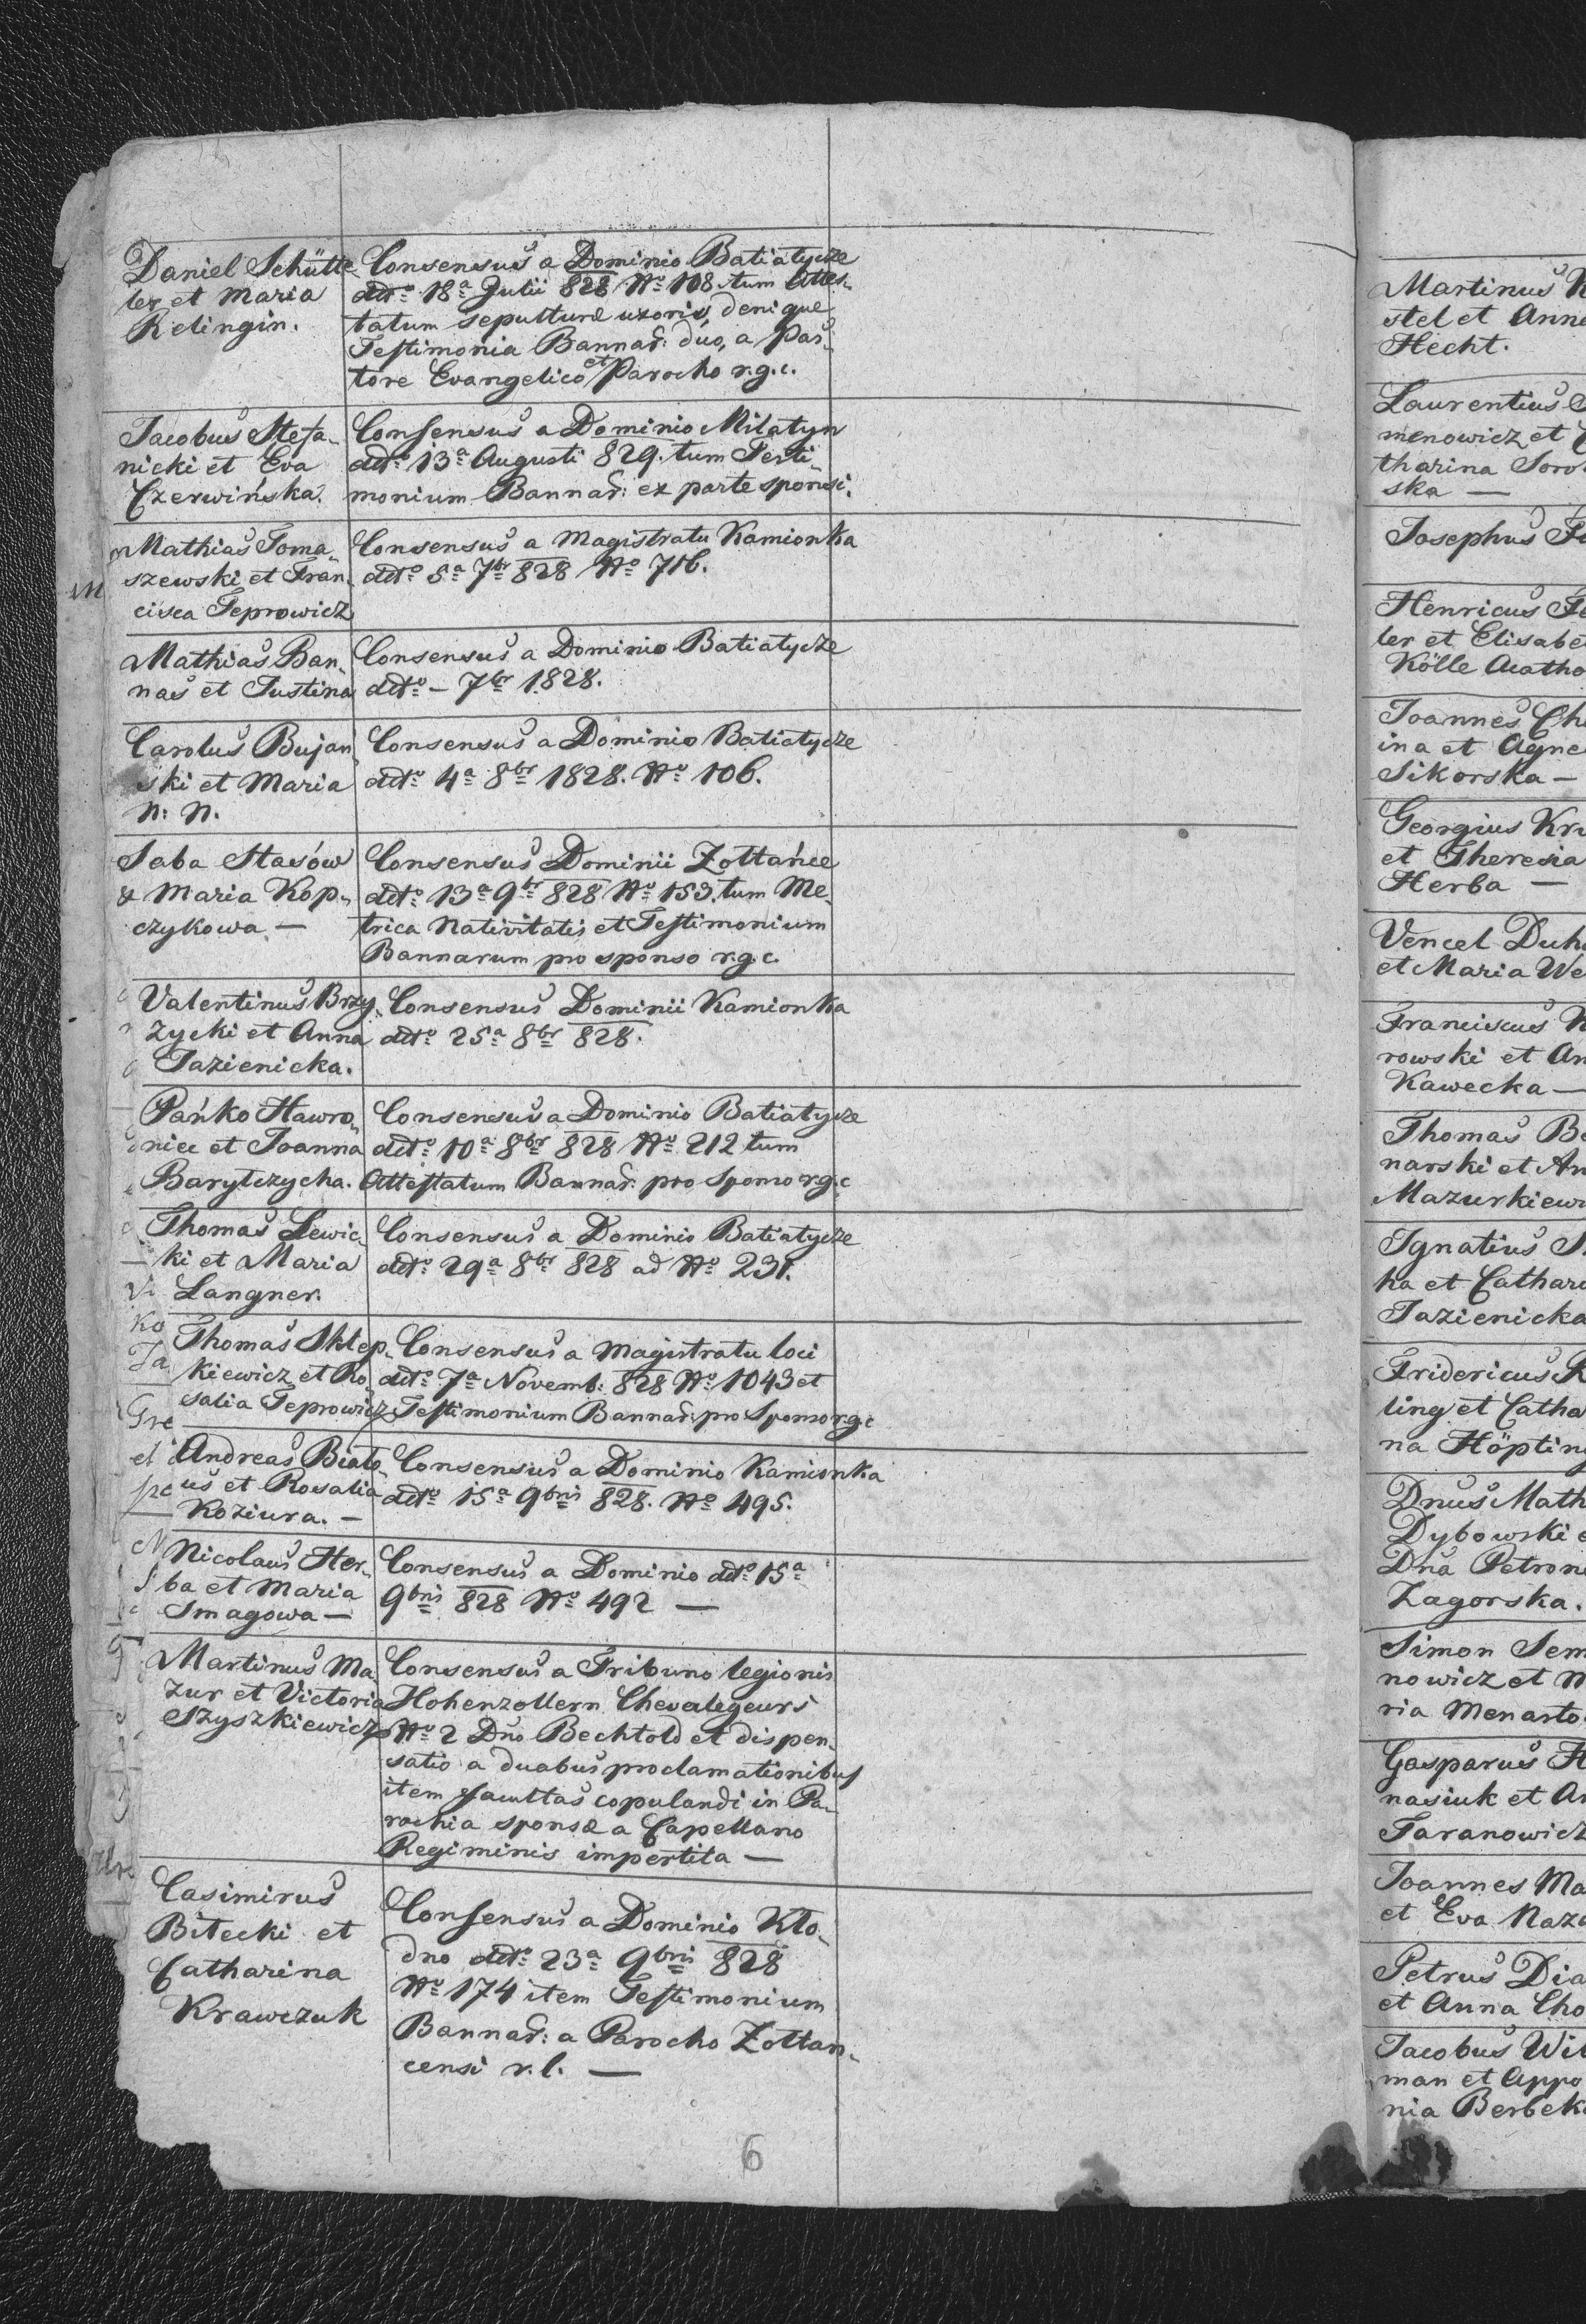 Daniel Schütte
ler et Maria
Relingin.
Consensus a Dominio Batiatycze
ddto 18a Julii 828 No 108 tum Attes-
tatum sepulturæ uxoris, denique
Testimonia Bannar: duo, a Pas-
tore Evangelico et Parocho r.g.c.
Jacobus Stefa-
nicki et Eva
Czerwińska.
Consensus a Dominio Milatyn
ddto 13a Augusti 829. tum Testi-
monium Bannar: ex parte sponsi.
Mathias Toma-
szewski et Fran-
cisca Teprowicz
Consensus a Magistratu Kamionka
ddto 5a 7br 828 No 716.
Mathias Ban-
nas et Justina
Consensus a Dominio Batiatycze
ddto – 7br 1828.
Carolus Bujan
ski et Maria
N: N.
Consensus a Dominio Batiatycze
ddto 4a 8br 1828. No 106.
Saba Stasów
& Maria Kop-
czykowa. —
Consensus Dominii Żołtańce
ddto 13a 9br 828 No 153. tum Me-
trica Nativitatis et Testimonium
Bannarum pro sponso r.g.c.
Valentinus Brzy-
zycki et Anna
Jazienicka.
Consensus Dominii Kamionka
ddto 25a 8br 828.
Pańko Hawro-
nice et Joanna
Barytczycha.
Consensus a Dominio Batiatycze
ddto 10a 8br 828 No 212 tum
Attestatum Bannar. pro Sponso r.g.c
Thomas Lewic-
ki et Maria
Langner.
Consensus a Dominio Batiatycze
ddto 29a 8br 828 ad No 231.
Thomas Sklep-
kiewicz et Ro-
salia Teprowicz
Consensus a Magistratu loci
ddto 7a Novemb: 828 No 1043 et
Testimonium Bannar: pro Sponso r.g.c
Andreas Biało-
us et Rosalia
Koziura. —
Consensus a Dominio Kamionka
ddto 15a 9bris 828. No 495.
Nicolaus Her-
ba et Maria
Smagowa —
Consensus a Dominio ddto 15a
9bris 828 No 492 —
Martinus Ma
zur et Victoria
Szyszkiewicz
Consensus a Tribuno legionis
Hohenzollern Chevalegeurs
No 2 Dno Bechtold et dispen-
satio a duabus proclamationibus
item facultas copulandi in Pa-
rochia sponsæ a Capellano
Regiminis impertita —
Casimirus
Bitecki et
Catharina
Krawczuk
Consensus a Dominio Kło-
dno ddto 23a 9bris 828
No 174 item Testimonium
Bannar: a Parocho Żołtan-
censi r.l. —
6
Martinus
stel et Anna
Hecht.
Laurentius
menowicz et
tharina
ska —
Josephus
Henricus
ler et Elisabe
Kölle Acatho
Joannes Ch
ina et Agne
Sikorska —
Georgius Kr
et Theresia
Herba —
Vencel Duh
et Maria We
Franciscus
rowski et An
Kawecka —
Thomas Be
narski et An
Mazurkiew
Ignatius
ka et Cathar
Jazienicka
Fridericus R
ling et Catha
na Höpting
Dnus Math
Dybowski e
Dna Petron
Zagorska.
Simon Sem
nowicz et M
ria Menarto
Gasparus H
nasiuk et An
Taranowicz
Joannes Ma
et Eva Naza
Petrus Dia
et Anna Cho
Jacobus Wil
man et Appo
nia Berbek